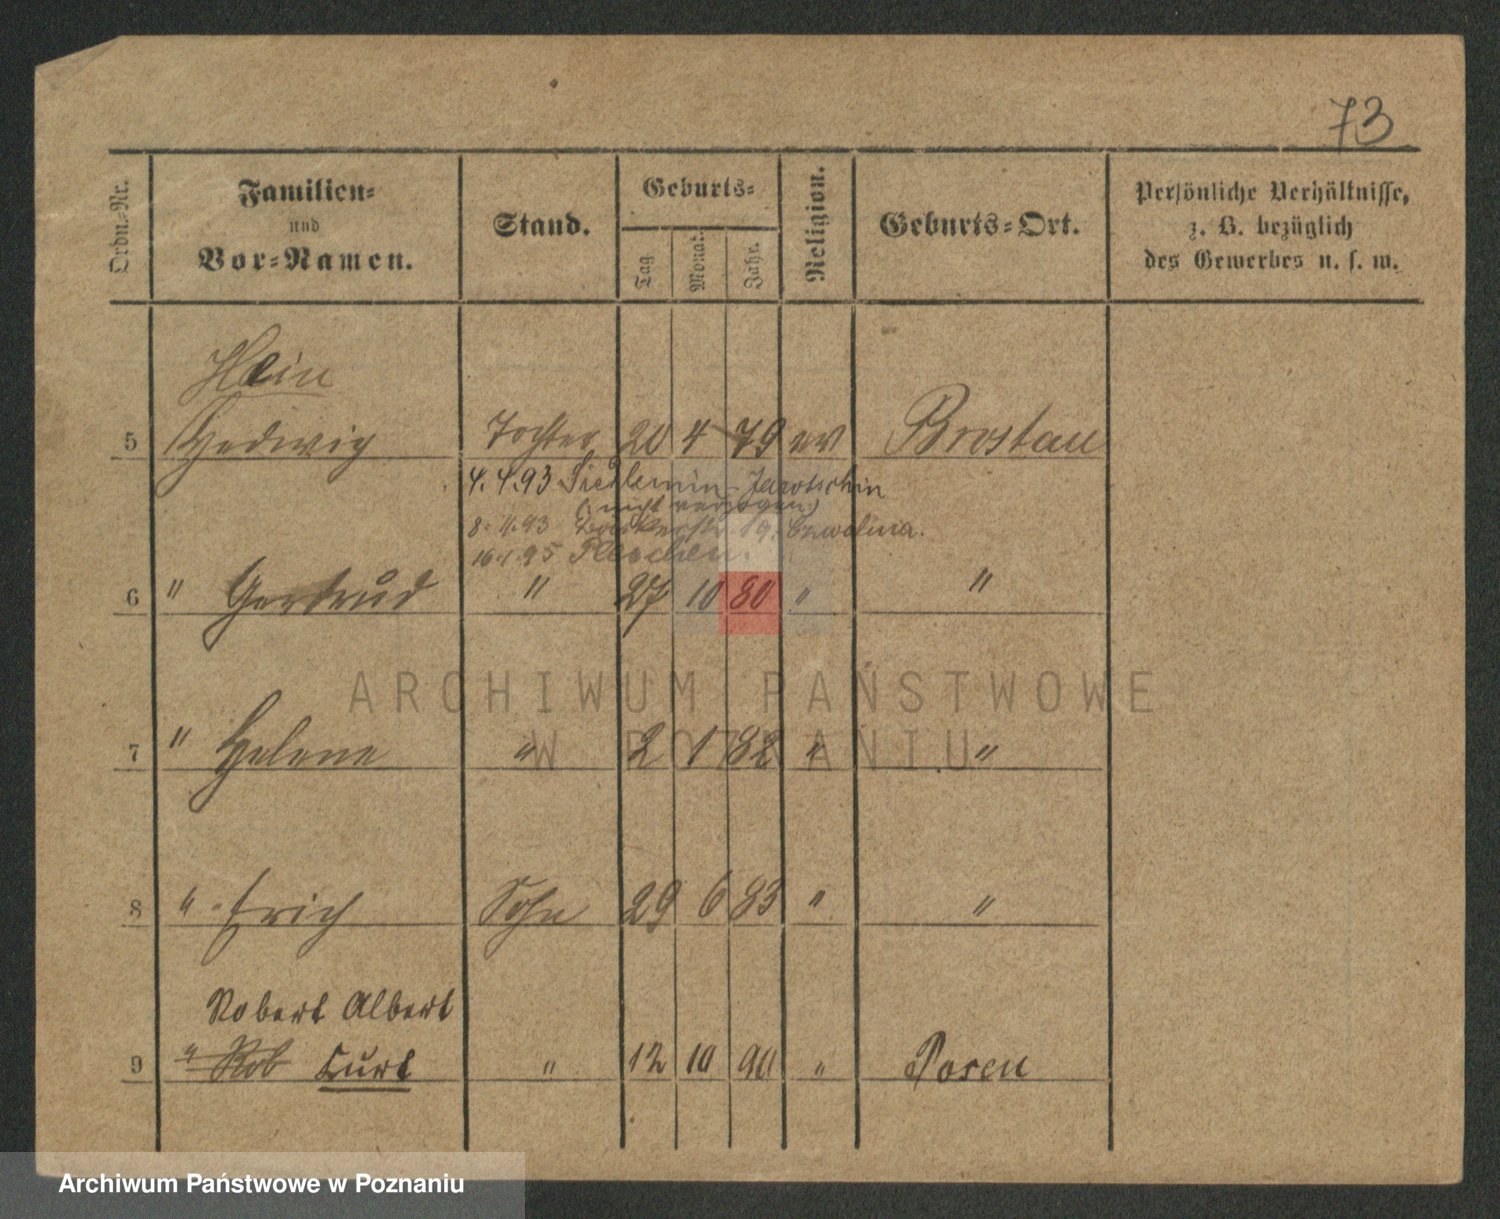 73
Ordn.-Nr.
Familien-
und
Vor-Namen.
Stand.
Geburts-
Tag.
Monat.
Jahr.
Religion.
Geburts-Ort.
Persönliche Verhältnisse,
z. B. bezüglich
des Gewerbes u. s. w.
Hein
5 Hedwig Tochter 20 4 79 ev Brostau
4.4.93 Siedlemin - Jarotschin
(nicht verzogen)
8. 4. 93 19.
16.1.95 Pleschen.
6 " Gertrud " 27 10 80 " "
ARCHIWUM PAŃSTWOWE
W POZNANIU
7 " Helene " 2 1 82 " "
8 " Erich Sohn 29 6 83 " "
Robert Albert
9 " Rob Curt " 12 10 90 " Posen
Archiwum Państwowe w Poznaniu